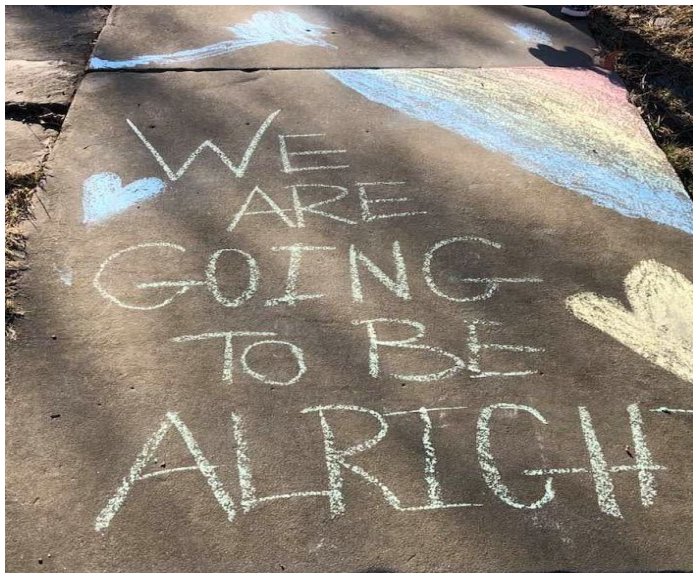 WE
ARE
GOING
TO BE
ALRIGHT